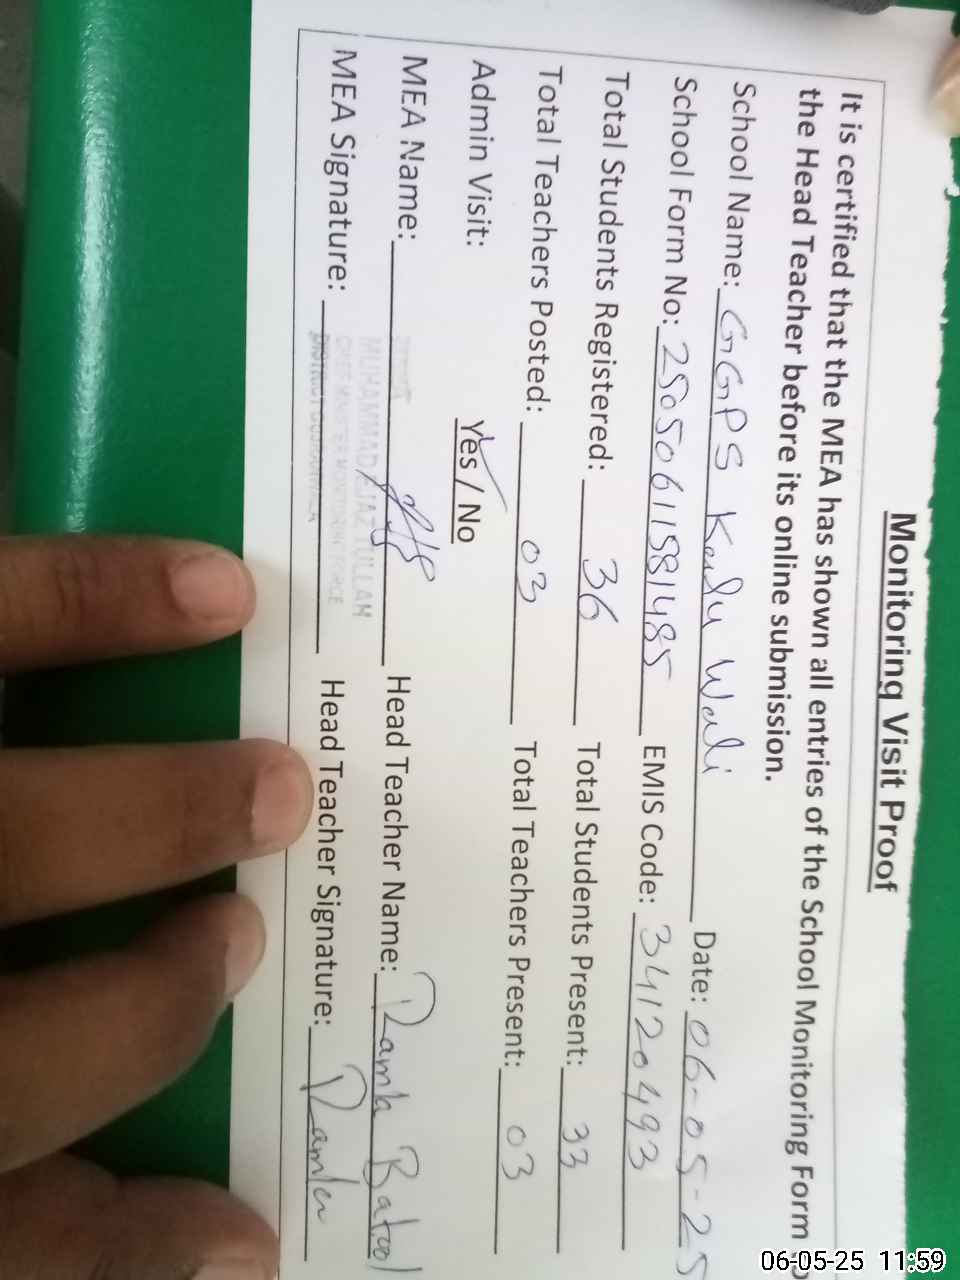 Monitoring Visit Proof
It is certified that the MEA has shown all entries of the School Monitoring Form
the Head Teacher before its online submission.
School Name: GGPS Kalu Wali Date: 06-05-25
School Form No: 25050611581485 EMIS Code: 34120493
Total Students Registered: 36 Total Students Present: 33
Total Teachers Posted: 03 Total Teachers Present: 03
Admin Visit: Yes / No
MEA Name: Head Teacher Name: Ramla Batool
MEA Signature: Head Teacher Signature: Ramla
MUHAMMAD
CHIEF MINISTER MONITORING FORCE
DISTRICT GUJRANWALA
06-05-25 11:59